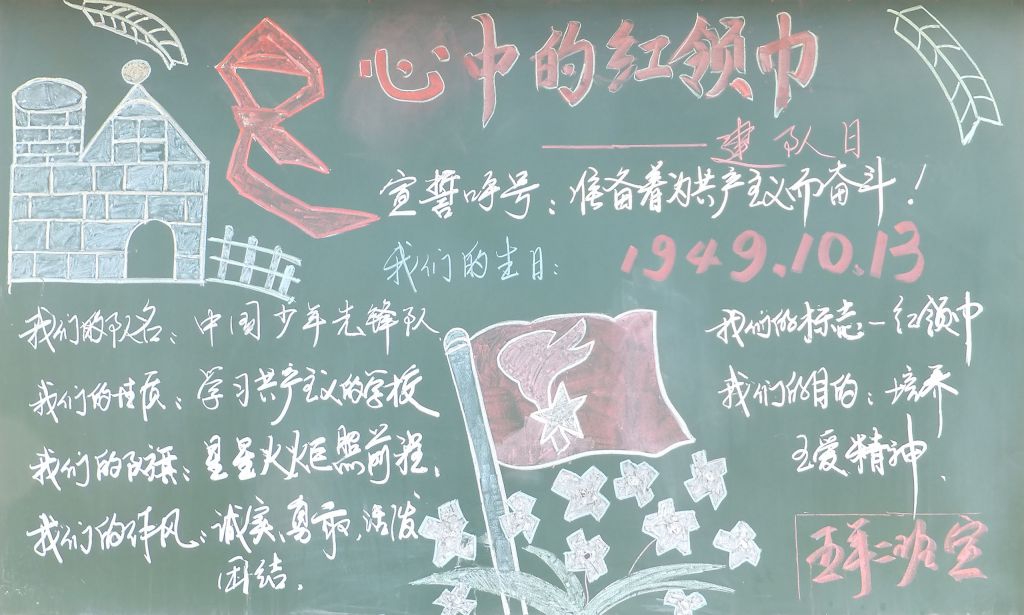 心中的红领巾
——建队日
宣誓呼号：准备着为共产主义而奋斗！
我们的生日：1949.10.13
我们的队名：中国少年先锋队
我们的性质：学习共产主义的学校
我们的队旗：星星火炬照前程.
我们的作风：诚实,勇敢,活泼
团结.
我们的标志：红领巾
我们的目的：培养
五爱精神.
五年二班宣